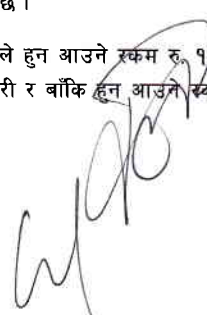 छ।
ले हुन आउने रकम रु. १
री र बाँकि हुन आउने